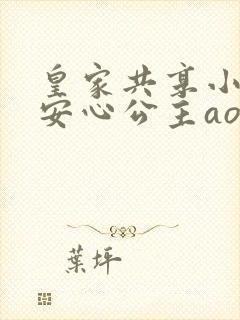 皇家共享小
安心公主ao
葉坪